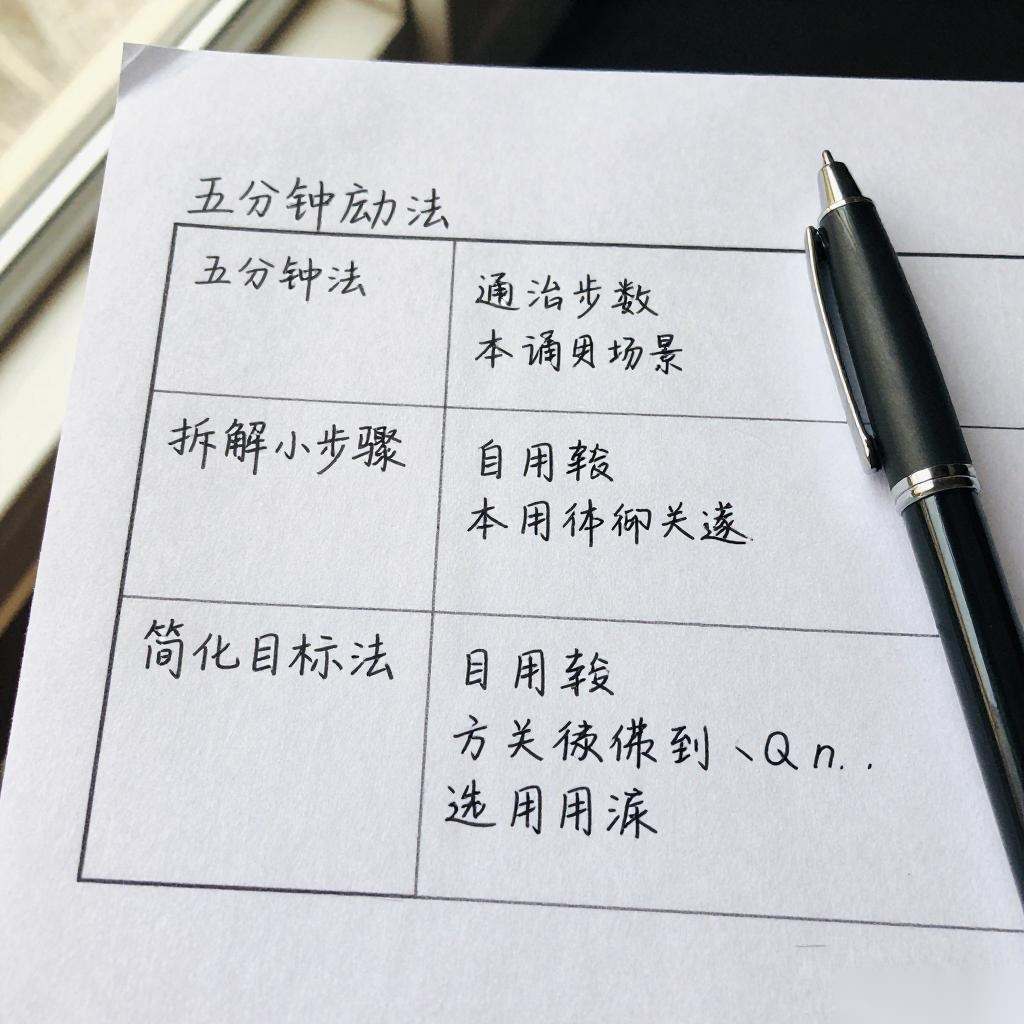 五分钟励法
五分钟法
通治步数
本诵用场景
拆解小步骤
自用
本用体仰关遂
简化目标法
目用
方关到、Q n..
选用用